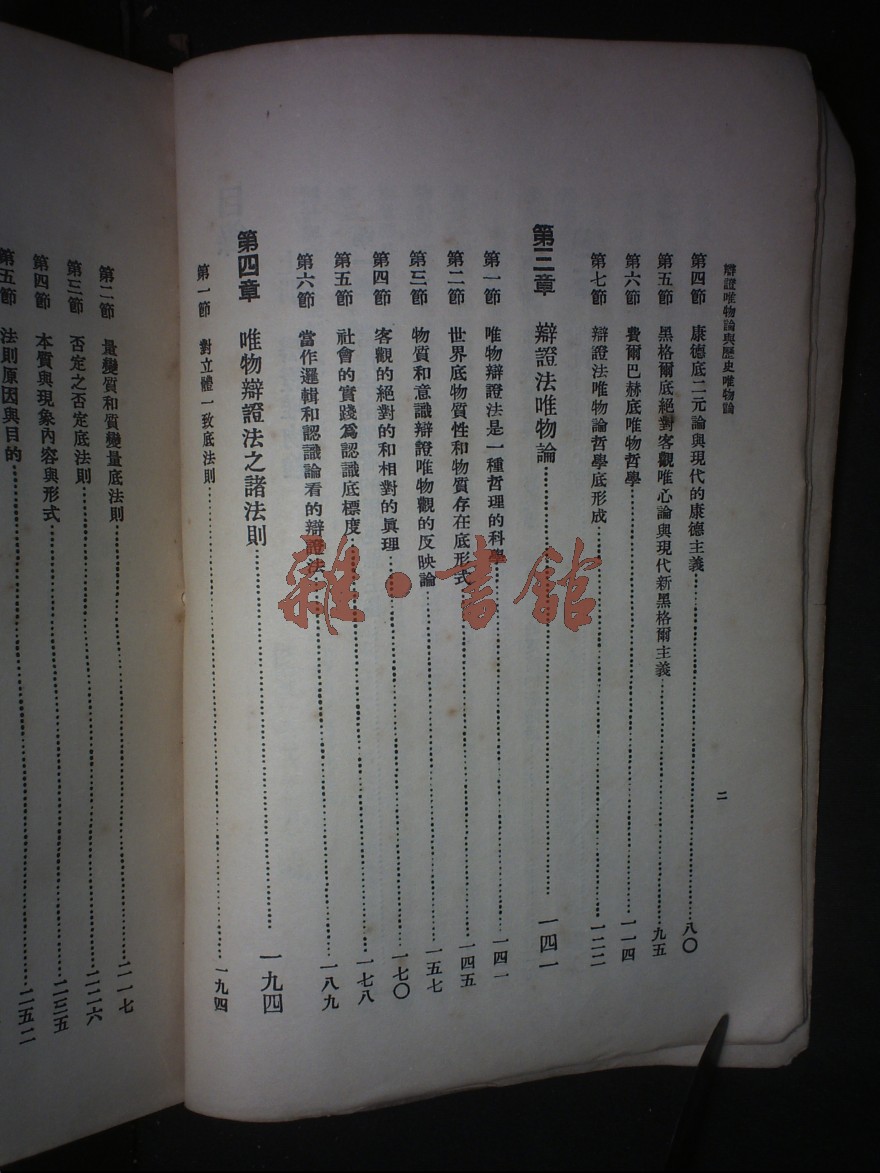 辯證唯物論與歷史唯物論
二
第四節 康德底二元論與現代的康德主義……八〇
第五節 黑格爾底絕對客觀唯心論與現代新黑格爾主義……九五
第六節 費爾巴赫底唯物哲學……一一四
第七節 辯證法唯物論哲學底形成……一二二
第三章 辯證法唯物論……一四一
第一節 唯物辯證法是一種哲理的科學……一四一
第二節 世界底物質性和物質存在底形式……一四五
第三節 物質和意識辯證唯物觀的反映論……一五七
第四節 客觀的絕對的和相對的眞理……一七〇
第五節 社會的實踐爲認識底標度……一七八
第六節 當作邏輯和認識論看的辯證法……一八九
第四章 唯物辯證法之諸法則……一九四
第一節 對立體一致底法則……一九四
第二節 量變質和質變量底法則……二一七
第三節 否定之否定底法則……二二六
第四節 本質與現象內容與形式……二三五
第五節 法則原因與目的……二五二
雜·書館